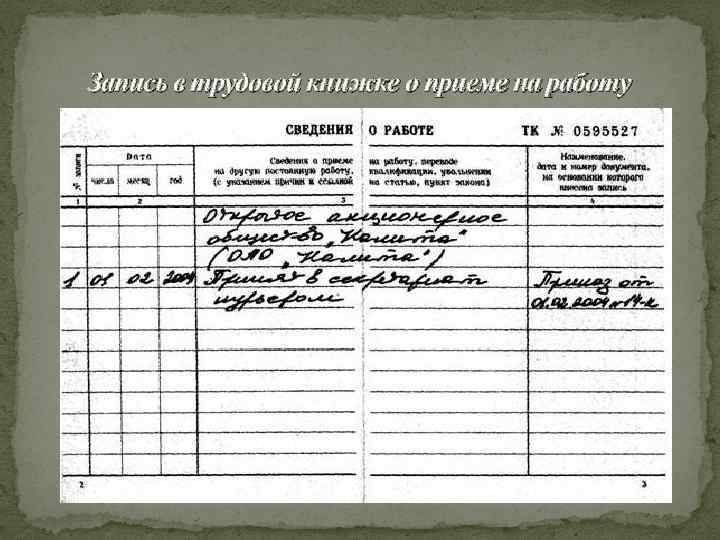 Запись в трудовой книжке о приеме на работу
СВЕДЕНИЯ О РАБОТЕ ТК № 0595527
№ записи
Дата
число месяц год
Сведения о приеме на работу, переводе
на другую постоянную работу, квалификации, увольнении
(с указанием причин и ссылкой на статью, пункт закона)
Наименование,
дата и номер документа,
на основании которого
внесена запись
1 2 3 4
Открытое акционерное
общество „Калита"
(ОАО „Калита")
1 02 2004 Принят в секретариат Приказ от
курьером 2004 № 14-к
2 3